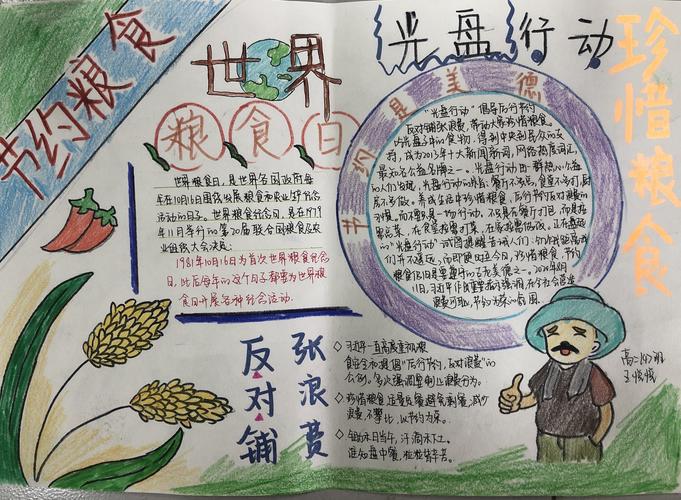 节约粮食
世界
粮食日
世界粮食日,是世界各国政府每
年在10月16日围绕发展粮食和农业举行纪念
活动的日子。世界粮食纪念日,是在1979
年11月举行的第20届联合国粮食及农
业组织大会决定:
1981年10月16日为首次世界粮食纪念
日,此后每年的这个日子都要为世界粮
食日开展各种纪念活动。
光盘行动
珍惜粮食
节约是美德
"光盘行动"倡导厉行节约
反对铺张浪费,带动大家珍惜粮食
吃光盘子中的食物,得到
成为2013年十大新闻热词,网络热度词汇,
最知名公益品牌之一。光盘行动由一群热心公益
的人们发起,光盘行动的宗旨:餐厅不多点,食堂不多打,厨
房不多做。养成生活中珍惜粮食,厉行节约反对浪费的
习惯,而不只是一场行动。不只是在餐厅打包,而是按
需点菜,在食堂按需打菜,在家按需做饭。正在盘起
的"光盘行动"试图提醒与告诫人们:饥饿距离我
们并不遥远,而即便时至今日,珍惜粮食,节约
粮食仍旧是需要遵守的古老美德之一。
反对铺
张浪费
◇习近平一直高度重视粮
食安全和提倡"厉行节约,反对浪费"的
◇珍惜粮食适量点餐避免剩餐,减少
浪费不攀比,以节约为荣。
◇锄禾日当午,汗滴禾下土。
谁知盘中餐,粒粒皆辛苦。